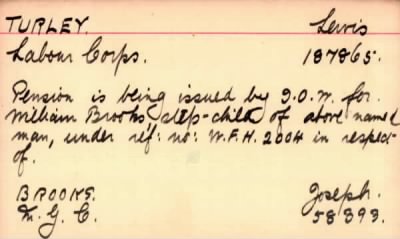 TURLEY. Lewis
Labour Corps. 187865.
Pension is being issued by I.O.W. for
William Brooks, step-child of above named
man, under ref: no: W.F.H. 2004 in respect
of.
BROOKS. Joseph.
M. G. C. 58393.